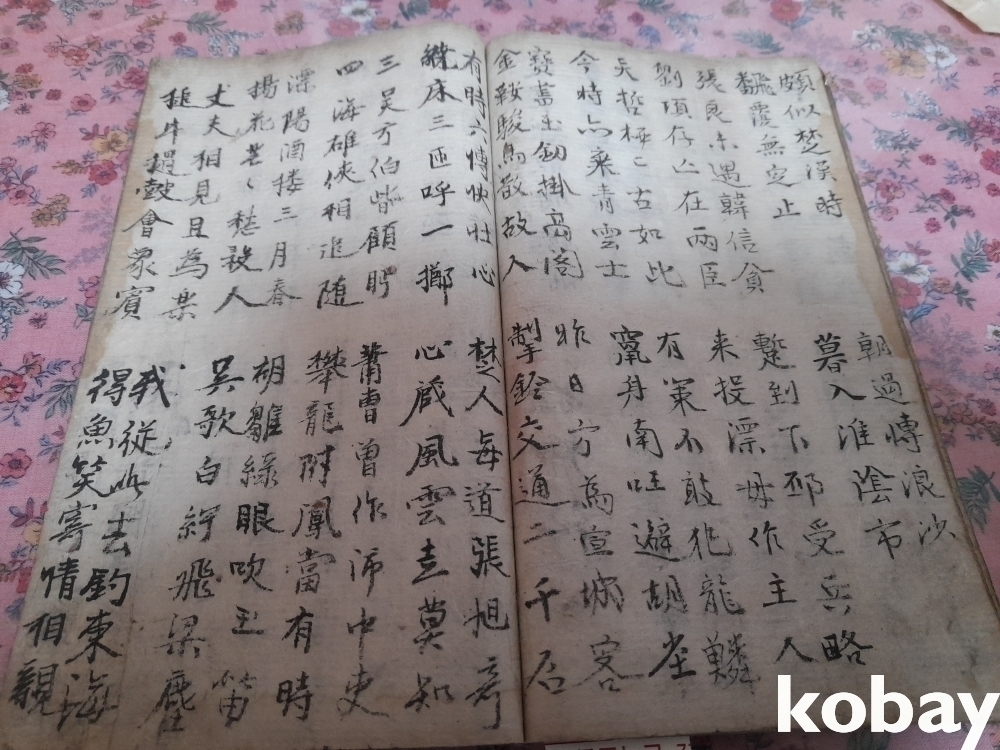 頗似楚漢時
翻覆無定止
朝過博浪沙
暮入淮陰市
張良未遇韓信貧
劉項存亡在兩臣
蹔到下邳受兵略
来投漂母作主人
哲極〻古如此
今時亦棄青雲士
有策不敢犯龍鱗
竄身南囯避胡塵
寶書玉釰掛高閣
金鞍駿馬散故人
昨日方為宣城客
掣鈴交通二千石
有時六博快壯心
繞床三匝呼一擲
楚人每道張旭奇
心藏風雲世莫知
三吴方伯皆顧眄
四海雄俠相追随
蕭曹曽作沛中吏
攀龍附鳳當有時
溧陽酒楼三月春
揚花芒〻愁殺人
胡雛緑眼吹玉笛
吴歌白紵飛梁塵
丈夫相見且為楽
槌牛撾皷會衆賓
我従此去釣東海
得魚笑寄情相親
kobay